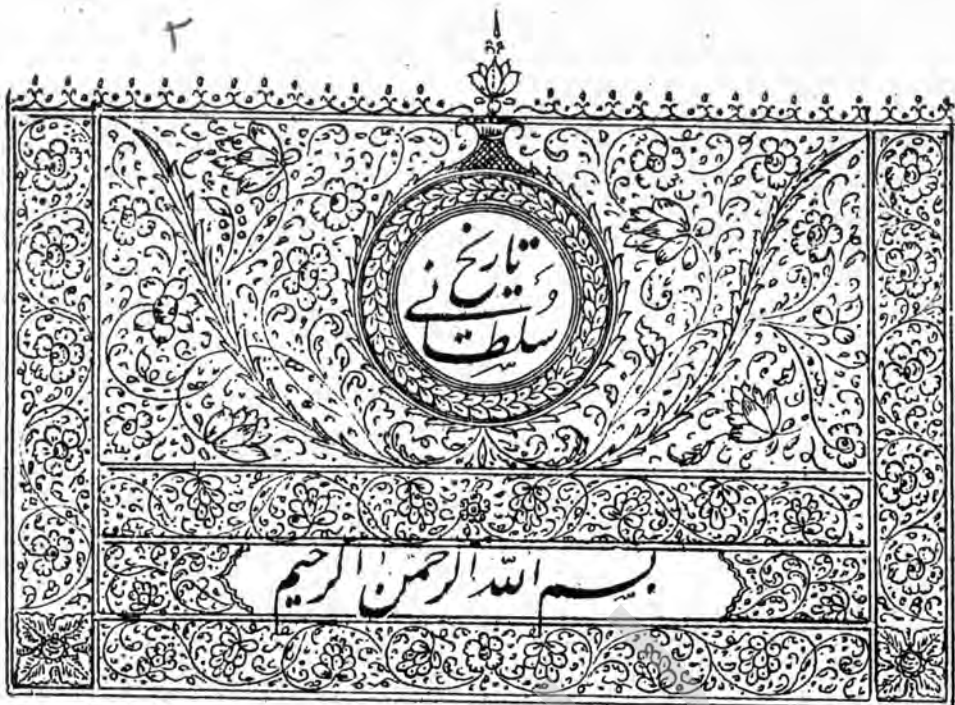 ٢
تاریخ
سلطانی
بسم الله الرحمن الرحیم